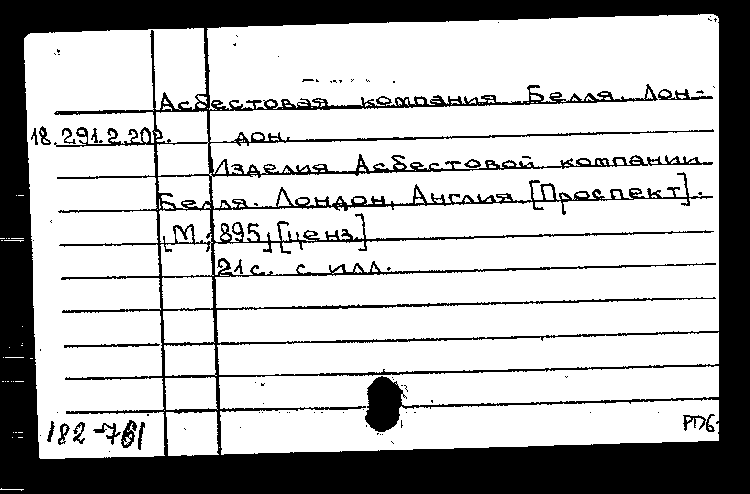 Асбестовая компания Белля. Лон-
18.291.2.202. дон.
Изделия Асбестовой компании
Белля. Лондон, Англия [Проспект].
[М, 1895] [ценз.]
21 с. с илл.
182-761